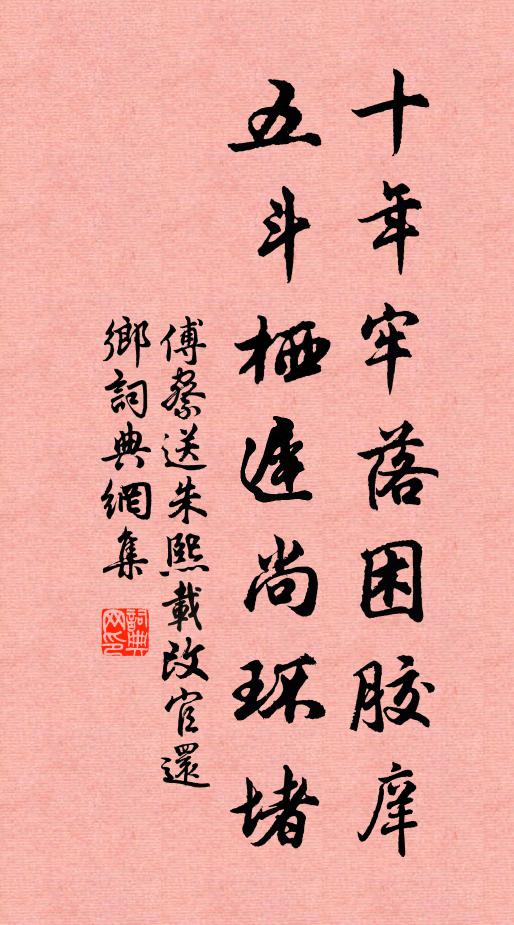 十年牢落困胶庠
五斗栖遲尚环堵
傅察送朱熙載改官還
鄉詞典網集
詞典
网印